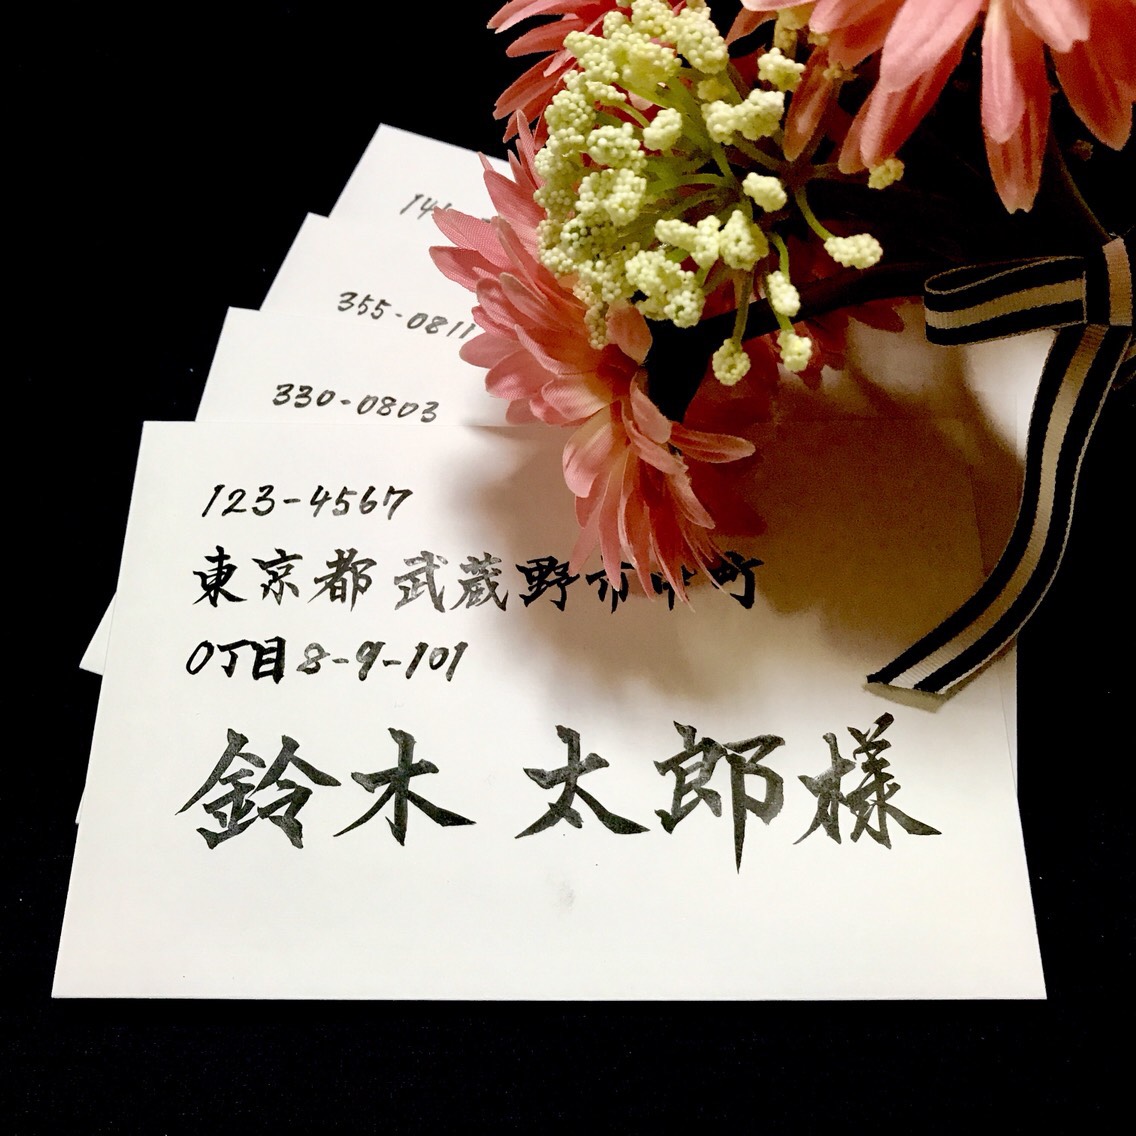 355-0811
330-0803
123-4567
東京都 武蔵野市中町
0丁目8-9-101
鈴木 太郎様